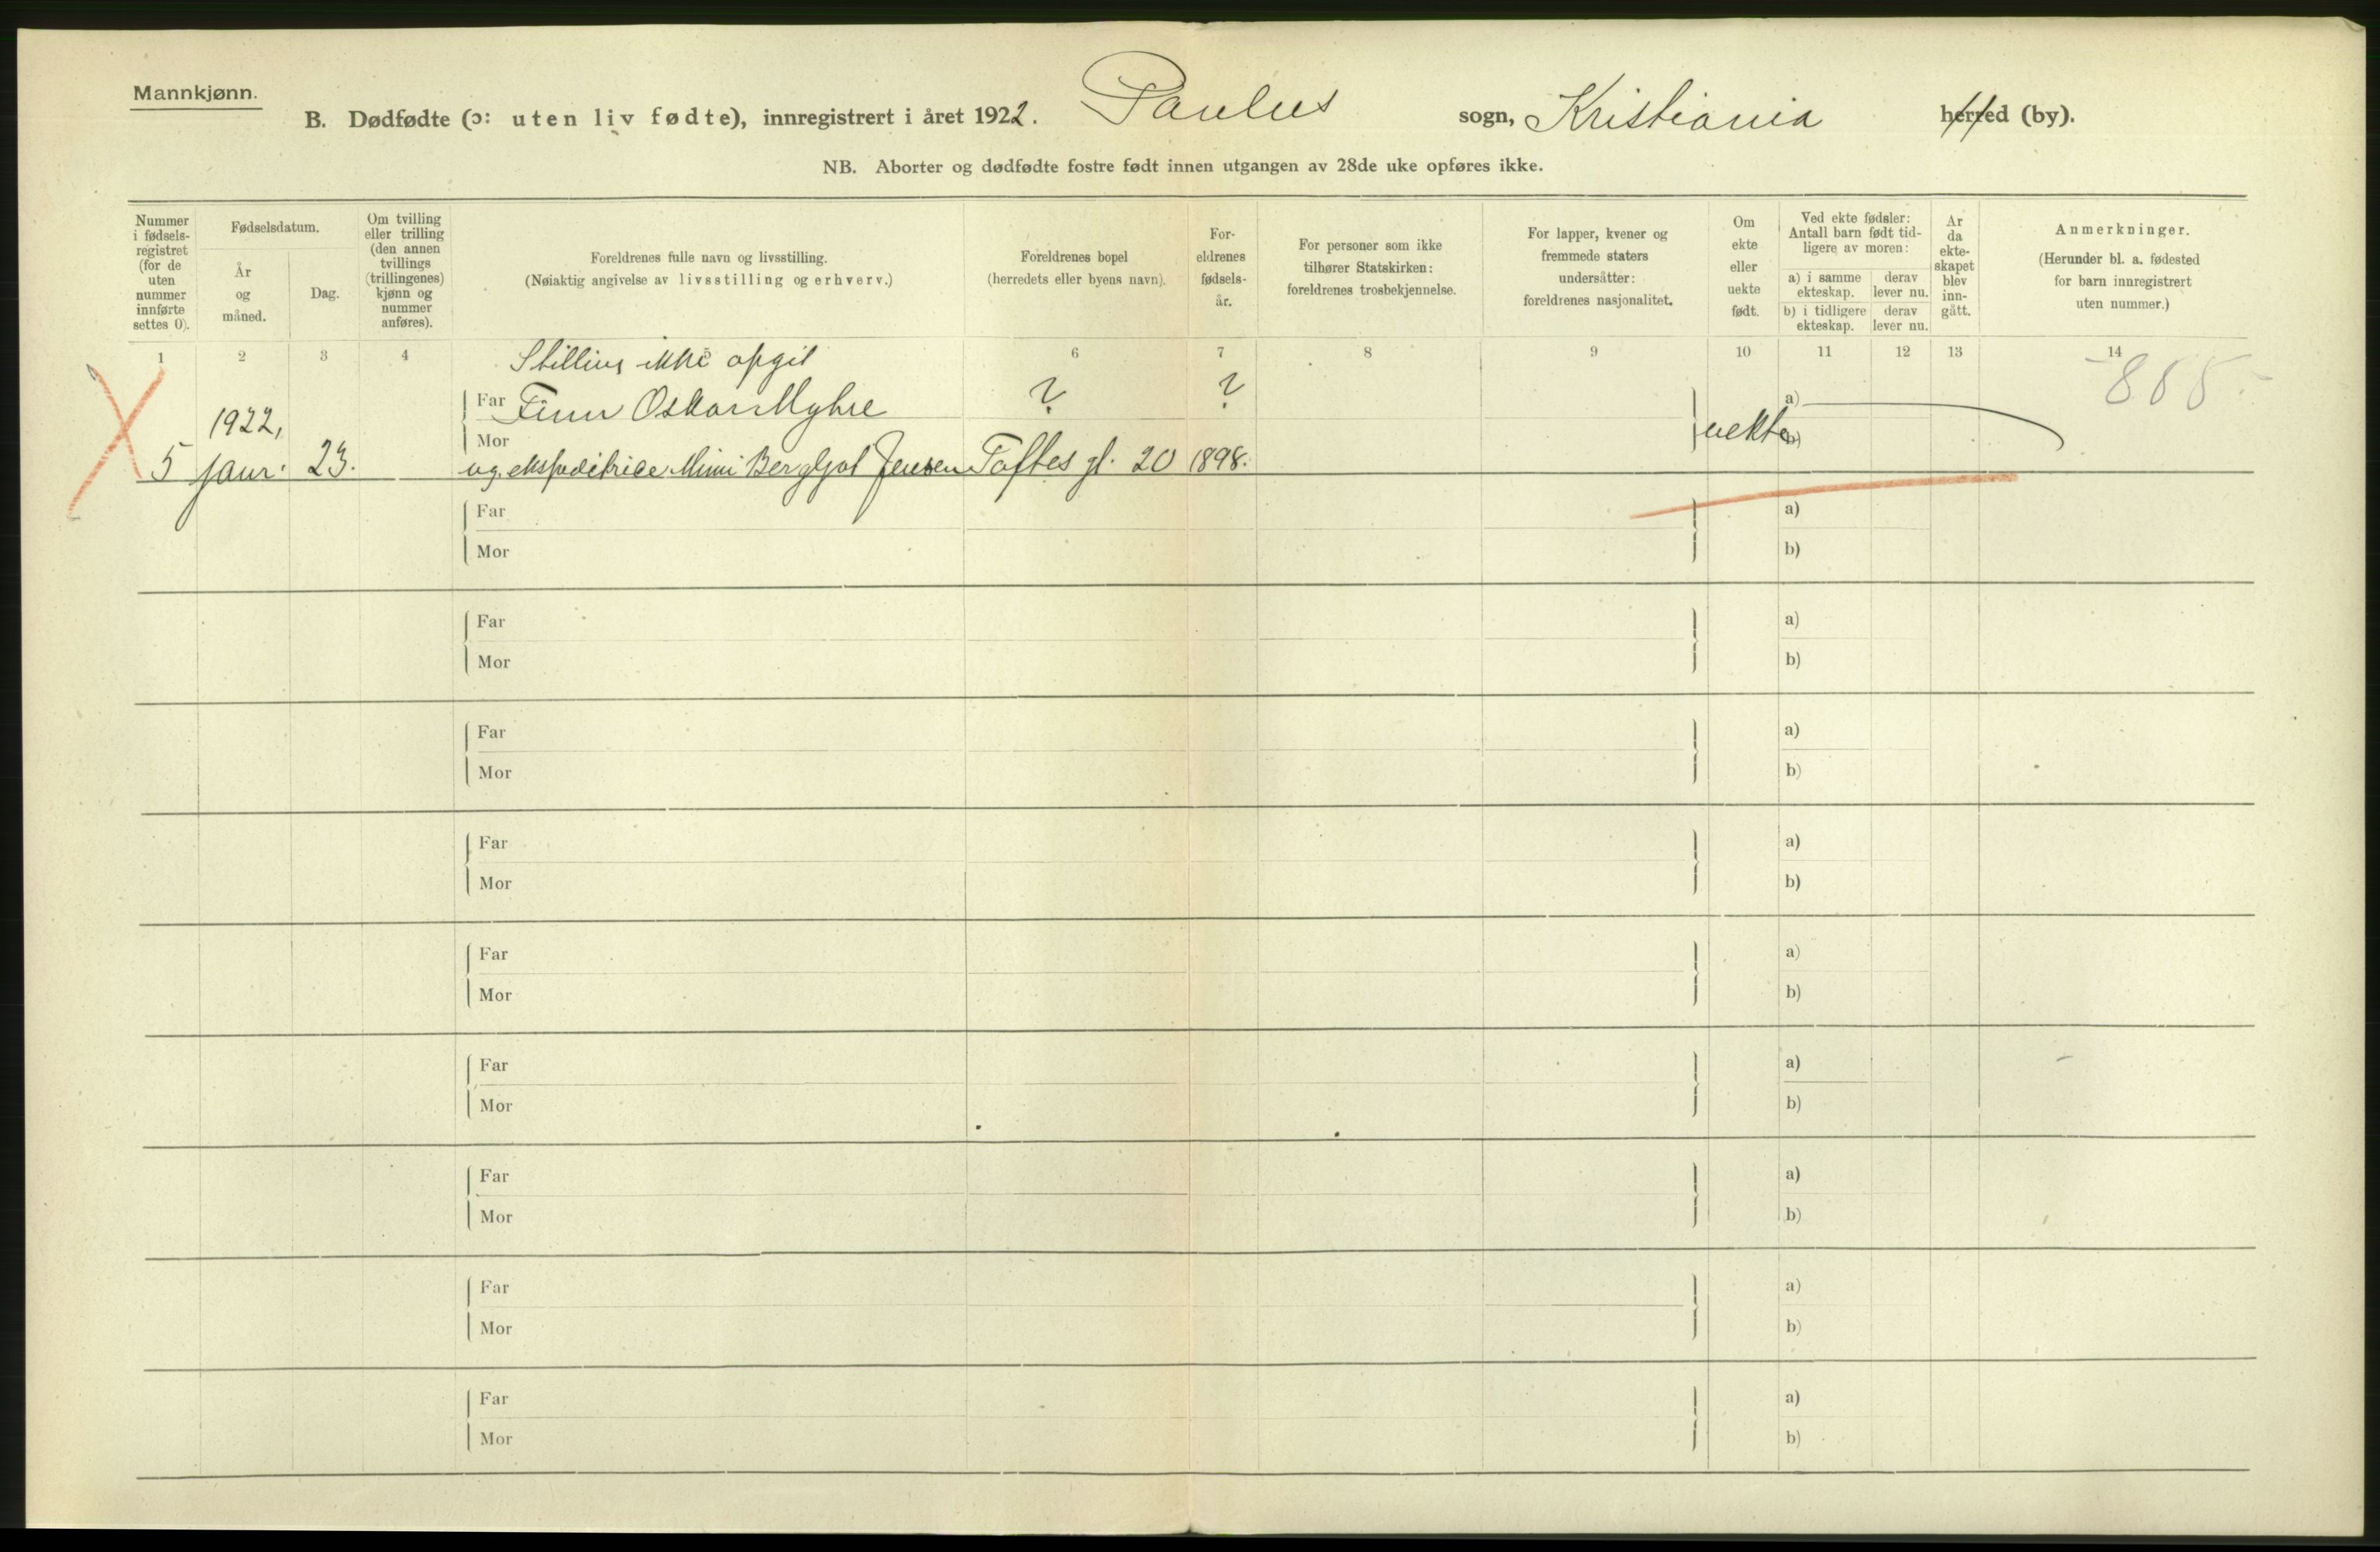 Mannkjønn.
B. Dødfødte (ɔ: uten liv fødte), innregistrert i året 1922. Paulus sogn, Kristiania herred (by).
NB. Aborter og dødfødte fostre født innen utgangen av 28de uke opføres ikke.
Nummer i fødsels-registret (for de uten nummer innførte settes 0).
Fødselsdatum.
År og måned.
Dag.
Om tvilling eller trilling (den annen tvillings (trillingenes) kjønn og nummer anføres).
Foreldrenes fulle navn og livsstilling.
(Nøiaktig angivelse av livsstilling og erhverv.)
Foreldrenes bopel
(herredets eller byens navn).
For-eldrenes fødsels-år.
For personer som ikke tilhører Statskirken: foreldrenes trosbekjennelse.
For lapper, kvener og fremmede staters undersåtter: foreldrenes nasjonalitet.
Om ekte eller uekte født.
Ved ekte fødsler: Antall barn født tid-ligere av moren:
a) i samme ekteskap. derav lever nu.
b) i tidligere ekteskap. derav lever nu.
År da ekte-skapet blev inn-gått.
Anmerkninger.
(Herunder bl. a. fødested for barn innregistrert uten nummer.)
1 2 3 4 6 7 8 9 10 11 12 13 14
Stilling ikke opgit
Far Finn Oskar Myhre ? ? a) 
1922,
Mor uekte b)
5 Janr. 23. ug. ekspeditrice Mimi Bergljot Jensen Toftes gt. 20 1898.
Far a)
Mor b)
Far a)
Mor b)
Far a)
Mor b)
Far a)
Mor b)
Far a)
Mor b)
Far a)
Mor b)
Far a)
Mor b)
Far a)
Mor b)
Far a)
Mor b)